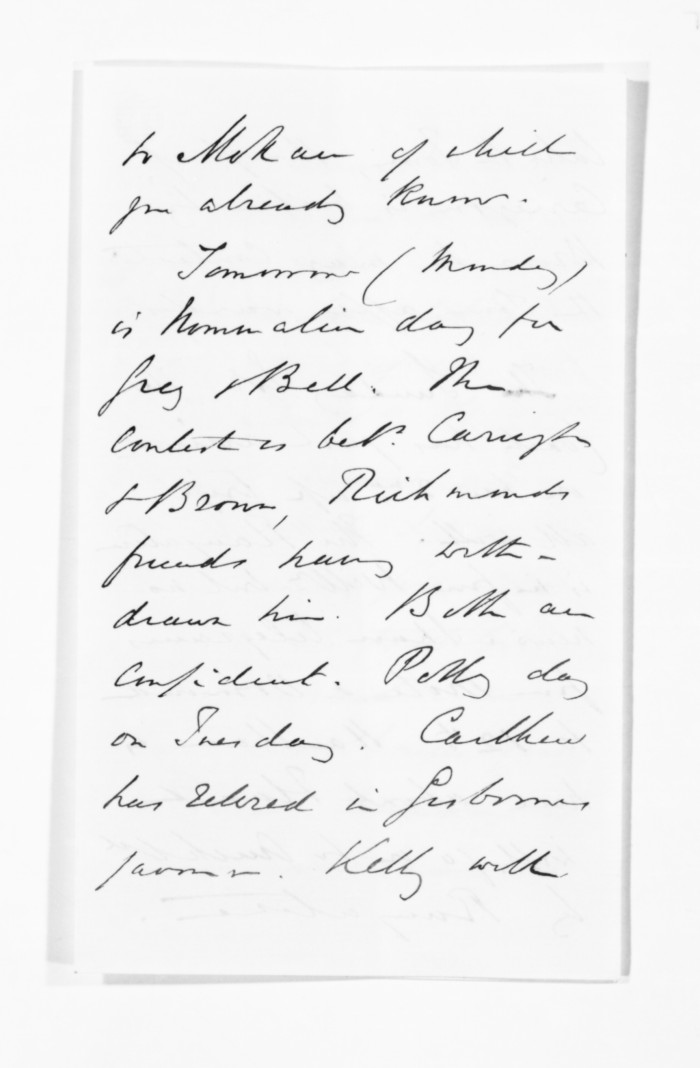 to Mokau of which
you already know.
Tomorrow (Monday)
is Nomination day for
Grey & Bell. The
contest is betn. Carrington
& Brown, Richmonds
friends having with-
drawn him. Both are
confident. Polly day
on Tuesday. Carthew
has retired in Gisbornes
favour. Kelly will